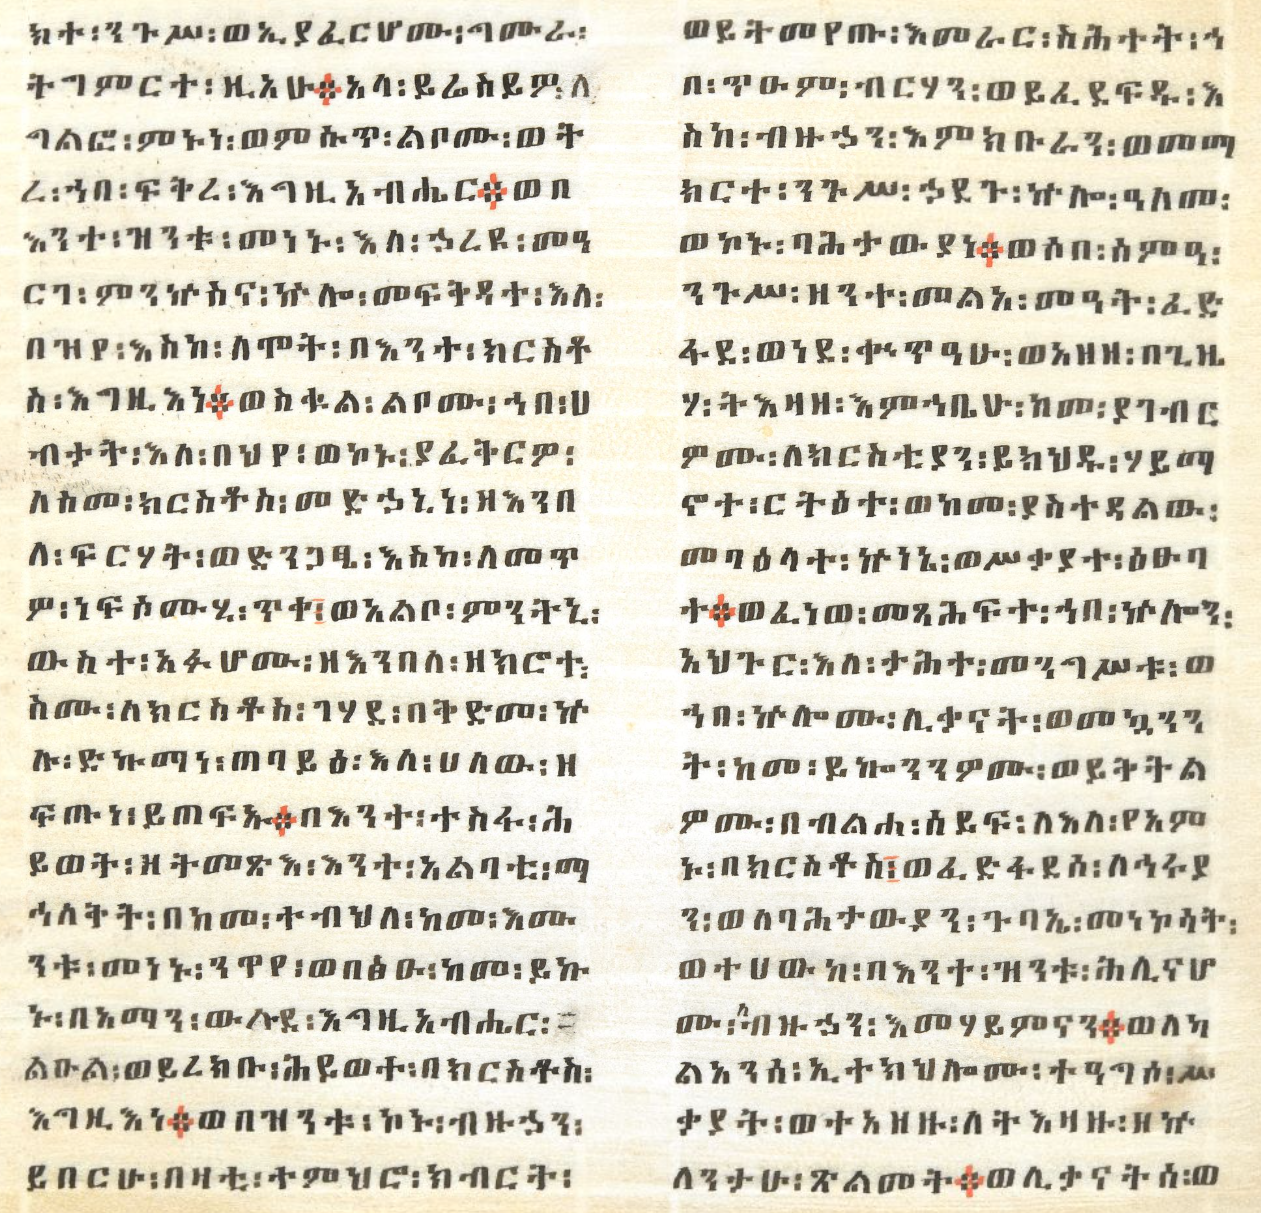 ክተ፡ንጉሥ፡ወኢያፈርሆሙ፡ጣሙራ፡
ትግምርተ፡ዚአሁ።አላ፡ይሬስይዎ፡ለ
ጣልፎ፡ምኑነ፡ወምሉጥ፡ልቦሙ፡ወት
ረ፡ኀበ፡ፍቅረ፡እግዚአብሔር።ወበ
እንተ፡ዝንቱ፡መነኑ፡እለ፡ኃረዩ፡መዓ
ርገ፡ምንኵስና፡ኵሎ፡መፍትዳተ፡እለ፡
በዝየ፡እስከ፡ለሞት፡በእንተ፡ክርስቶ
ስ፡እግዚእነ።ወስቁል፡ልቦሙ፡ኀበ፡ሀ
ብታት፡እለ፡በህየ፡ወኮኑ፡ያፈትርዎ፡
ለስመ፡ክርስቶስ፡መድኃኒነ፡ዘእንበ
ለ፡ፍርሃት፡ወድንጋፄ፡እስከ፡ለመጥ
ዎ፡ነፍሶሙ፡ሂ፡ጥቀ፡ወአልቦ፡ምንትኒ፡
ውስተ፡አፉሆሙ፡ዘእንበለ፡ዘክሮተ፡
ስሙ፡ለክርስቶስ፡ገሃደ፡በቅድመ፡ኵ
ሉ፡ድኩማነ፡ጠባይዕ፡እለ፡ሀለው፡ዘ
ፍጡነ፡ይጠፍኡ።በእንተ፡ተስፋ፡ሕ
ይወት፡ዘትመጽእ፡እንተ፡አልባቲ፡ማ
ኅለቅት፡በከመ፡ተብህለ፡ከመ፡እሙ
ንቱ፡መነኑ፡ንዋየ፡ወበፅዑ፡ከመ፡ይኩ
ኑ፡በአማን፡ውሉደ፡እግዚአብሔር፡
ልዑል፡ወይረክቡ፡ሕይወተ፡በክርስቶስ፡
እግዚእነ።ወበዝንቱ፡ኮኑ፡ብዙኃን፡
ይበርሁ፡በዛቲ፡ተምህሮ፡ክብርት፡
ወይትመየጡ፡እመራር፡ስሕተት፡ኀ
በ፡ጥዑም፡ብርሃን፡ወይፈደፍዱ፡እ
ስከ፡ብዙኃን፡እምክቡራን፡ወመማ
ክርተ፡ንጉሥ፡ኃደጉ፡ኵሎ፡ዓለመ፡
ወኮኑ፡ባሕታውያነ።ወሶበ፡ሰምዓ፡
ንጉሥ፡ዘንተ፡መልአ፡መዓት፡ፈድ
ፋደ፡ወነደ፡ቍጥዓሁ፡ወአዘዘ፡በጊዜ
ሃ፡ትእዛዘ፡እምኀቤሁ፡ከመ፡ያገብር
ዎሙ፡ለክርስቲያን፡ይክህዱ፡ሃይማ
ኖተ፡ርትዕተ፡ወከመ፡ያስተዳልው፡
መባዕላተ፡ኵነኔ፡ወሥቃያተ፡ዕፁባ
ተ።ወፈነወ፡መጻሕፍተ፡ኀበ፡ኵሎን፡
አህጉር፡እለ፡ታሕተ፡መንግሥቱ፡ወ
ኀበ፡ኵሎሙ፡ሊቃናት፡ወመኳንን
ት፡ከመ፡ይኰንንዎሙ፡ወይትትል
ዎሙ፡በብልሐ፡ሰይፍ፡ለእለ፡የአም
ኑ፡በክርስቶስ፡ወፈድፋደሰ፡ለኅሩያ
ን፡ወለባሕታውያን፡ጉባኤ፡መነኮሳት፡
ወተሀውከ፡በእንተ፡ዝንቱ፡ሕሊናሆ
ሙ፡ለብዙኃን፡እመሃይምናን።ወለካ
ልአንሰ፡ኢተክህሎሙ፡ተዓግሶ፡ሥ
ቃያት፡ወተአዘዙ፡ለትእዛዙ፡ዘኵ
ለንታሁ፡ጽልመት።ወሊቃናትሰ፡ወ